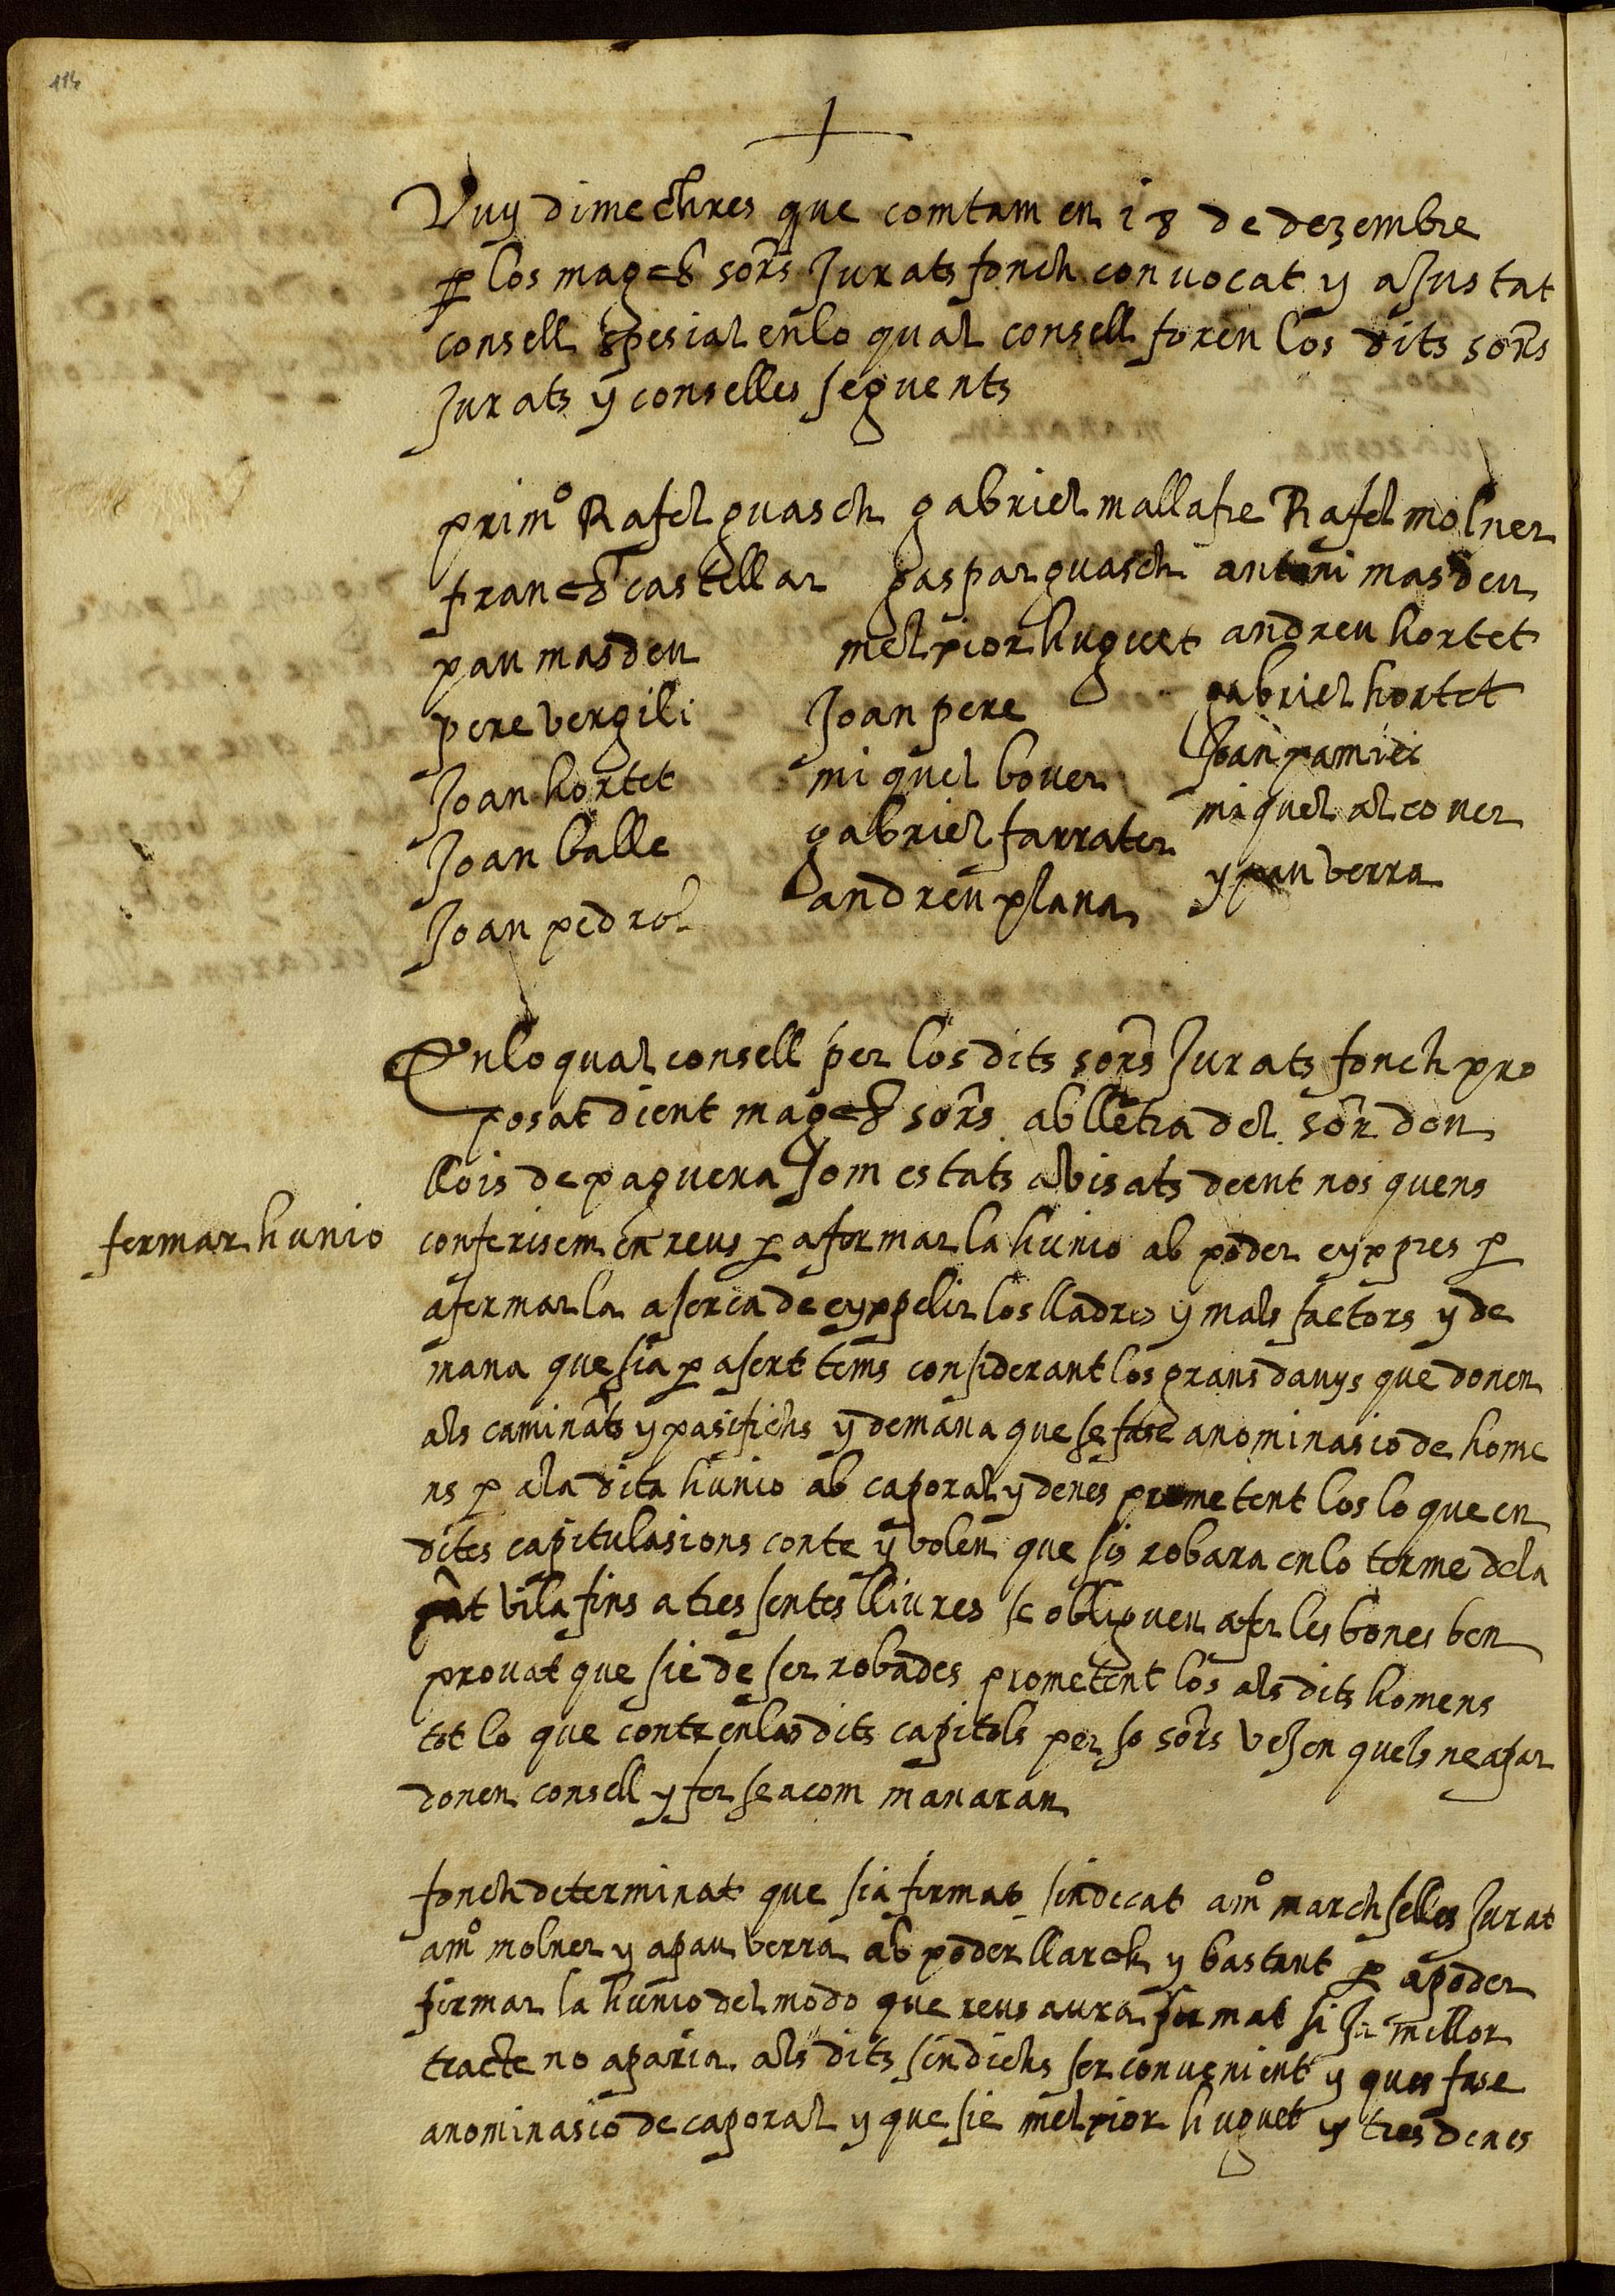 114
Vuy dimechres que comtam en 18 de dezembre
p los magchs sors Jurats fonch convocat y aJustat
consell spesial en lo qual consell foren los dits sors
Jurats y conselles seguents
primo Rafel guasch gabriel mallafre Rafel molner
franch castellar gaspar guasch antoni masdeu
pau masdeu melpior huguet andreu hortet
pere vergili Joan pere gabriel hortet
Joan hortet miquel bover Joan pamies
Joan balle gabriel farrater miquel alcover
Joan pedrol andreu plana y pau verra
En lo qual consell per los dits sors Jurats fonch pro
posat dient magchs sors ab lletra del sor don
llois de paguera som estats abisats dient nos quens
fermar hunio
conferisem en reus p a fermar la hunio ab poder eyxpres p
a fermar la aserca de eyxpelir los lladres y mals factors y de
mana que sia p a sert tems considerant los grans danys que donen
als caminats y pasifichs y demana que se fase anominasio de home
ns p a la dita hunio ab caporal y denes prometent los lo que en
dites capitulasions conte y volen que sis robara en lo terme de la
pnt vila fins a tres sentes lliures se obliguen a fer les bones ben
provat que sie de ser robades prometent los als dits homens
tot lo que conte en los dits capitols per so sors veJen quels ne apar
donen consell y fer se a com manaran
fonch determinat que sia fermat sindecat a mo march selles Jurat
a mo molner y a pau verra ab poder llarch y bastant p a poder
fermar la hunio del modo que reus aura fermat si Ja millor
tracte no aparia als dits sindichs ser convenient y ques fase
anominasio de caporal y que sie melpior huguet y tres denes